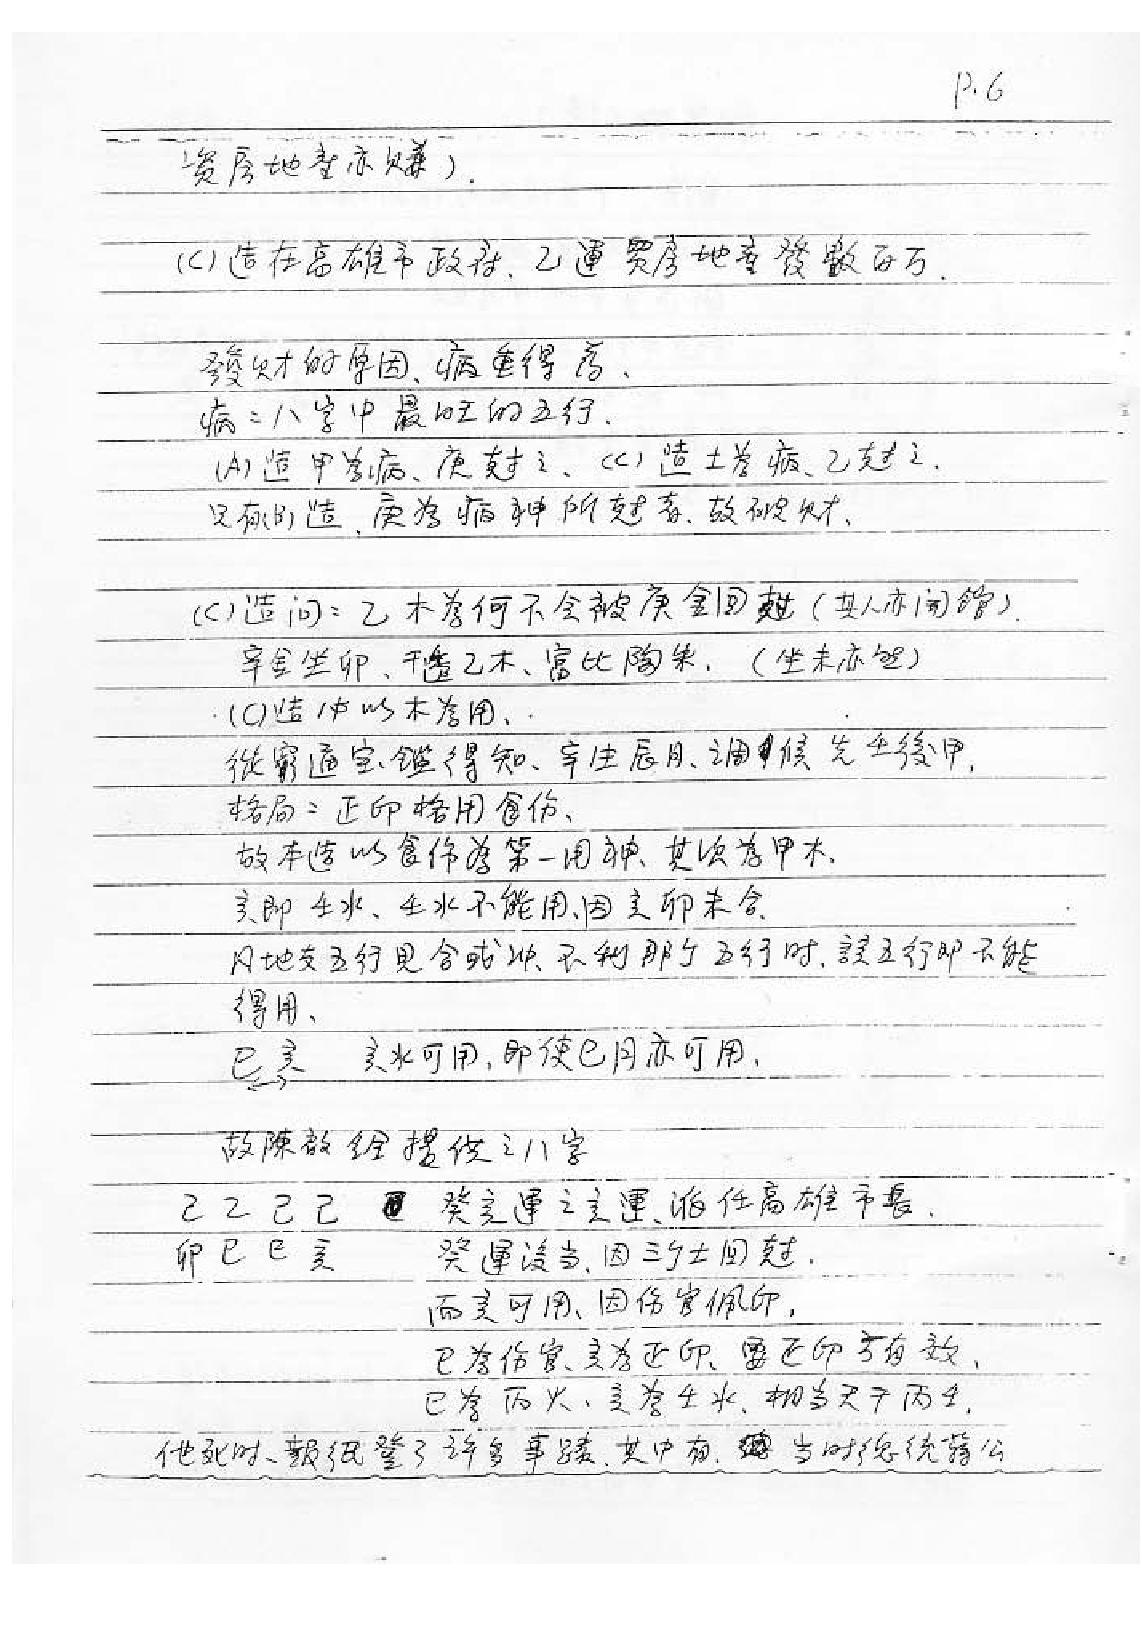 P.6
資房地產亦賺).
(C)造在高雄市政府、乙運買房地產發數百万.
發财的原因、病重得葯、
病:八字中最旺的五行.
(A)造甲為病、庚尅之、(C)造土為病、乙尅之.
只有(B)造、庚為病神所尅者、故破财、
(C)造问:乙木為何不会被庚金回尅(其人亦闹窮).
辛金坐卯、干透乙木、富比陶朱.(坐未亦然)
(C)造、以木為用、
從窮通宝鑑得知、辛生辰月、调候先壬後甲.
格局:正印格用食伤、
故本造以食伤為第一用神、其次為甲木.
亥即壬水、壬水不能用、因亥卯未合.
凡地支五行見合或冲、不利那个五行时、該五行即不能
得用、
巳亥 亥水可用,即使巳月亦可用.
故陳啟经提供之八字
己乙己己 癸亥運之亥運、派任高雄市長.
卯巳巳亥 癸運没当、因三个土回尅.
而亥可用、因伤官佩印.
巳為伤官、亥為正印、要正印才有效、
巳為丙火、亥為壬水、相当天干丙壬.
他死时、報纸登了许多事蹟、其中有、當时總统蒋公